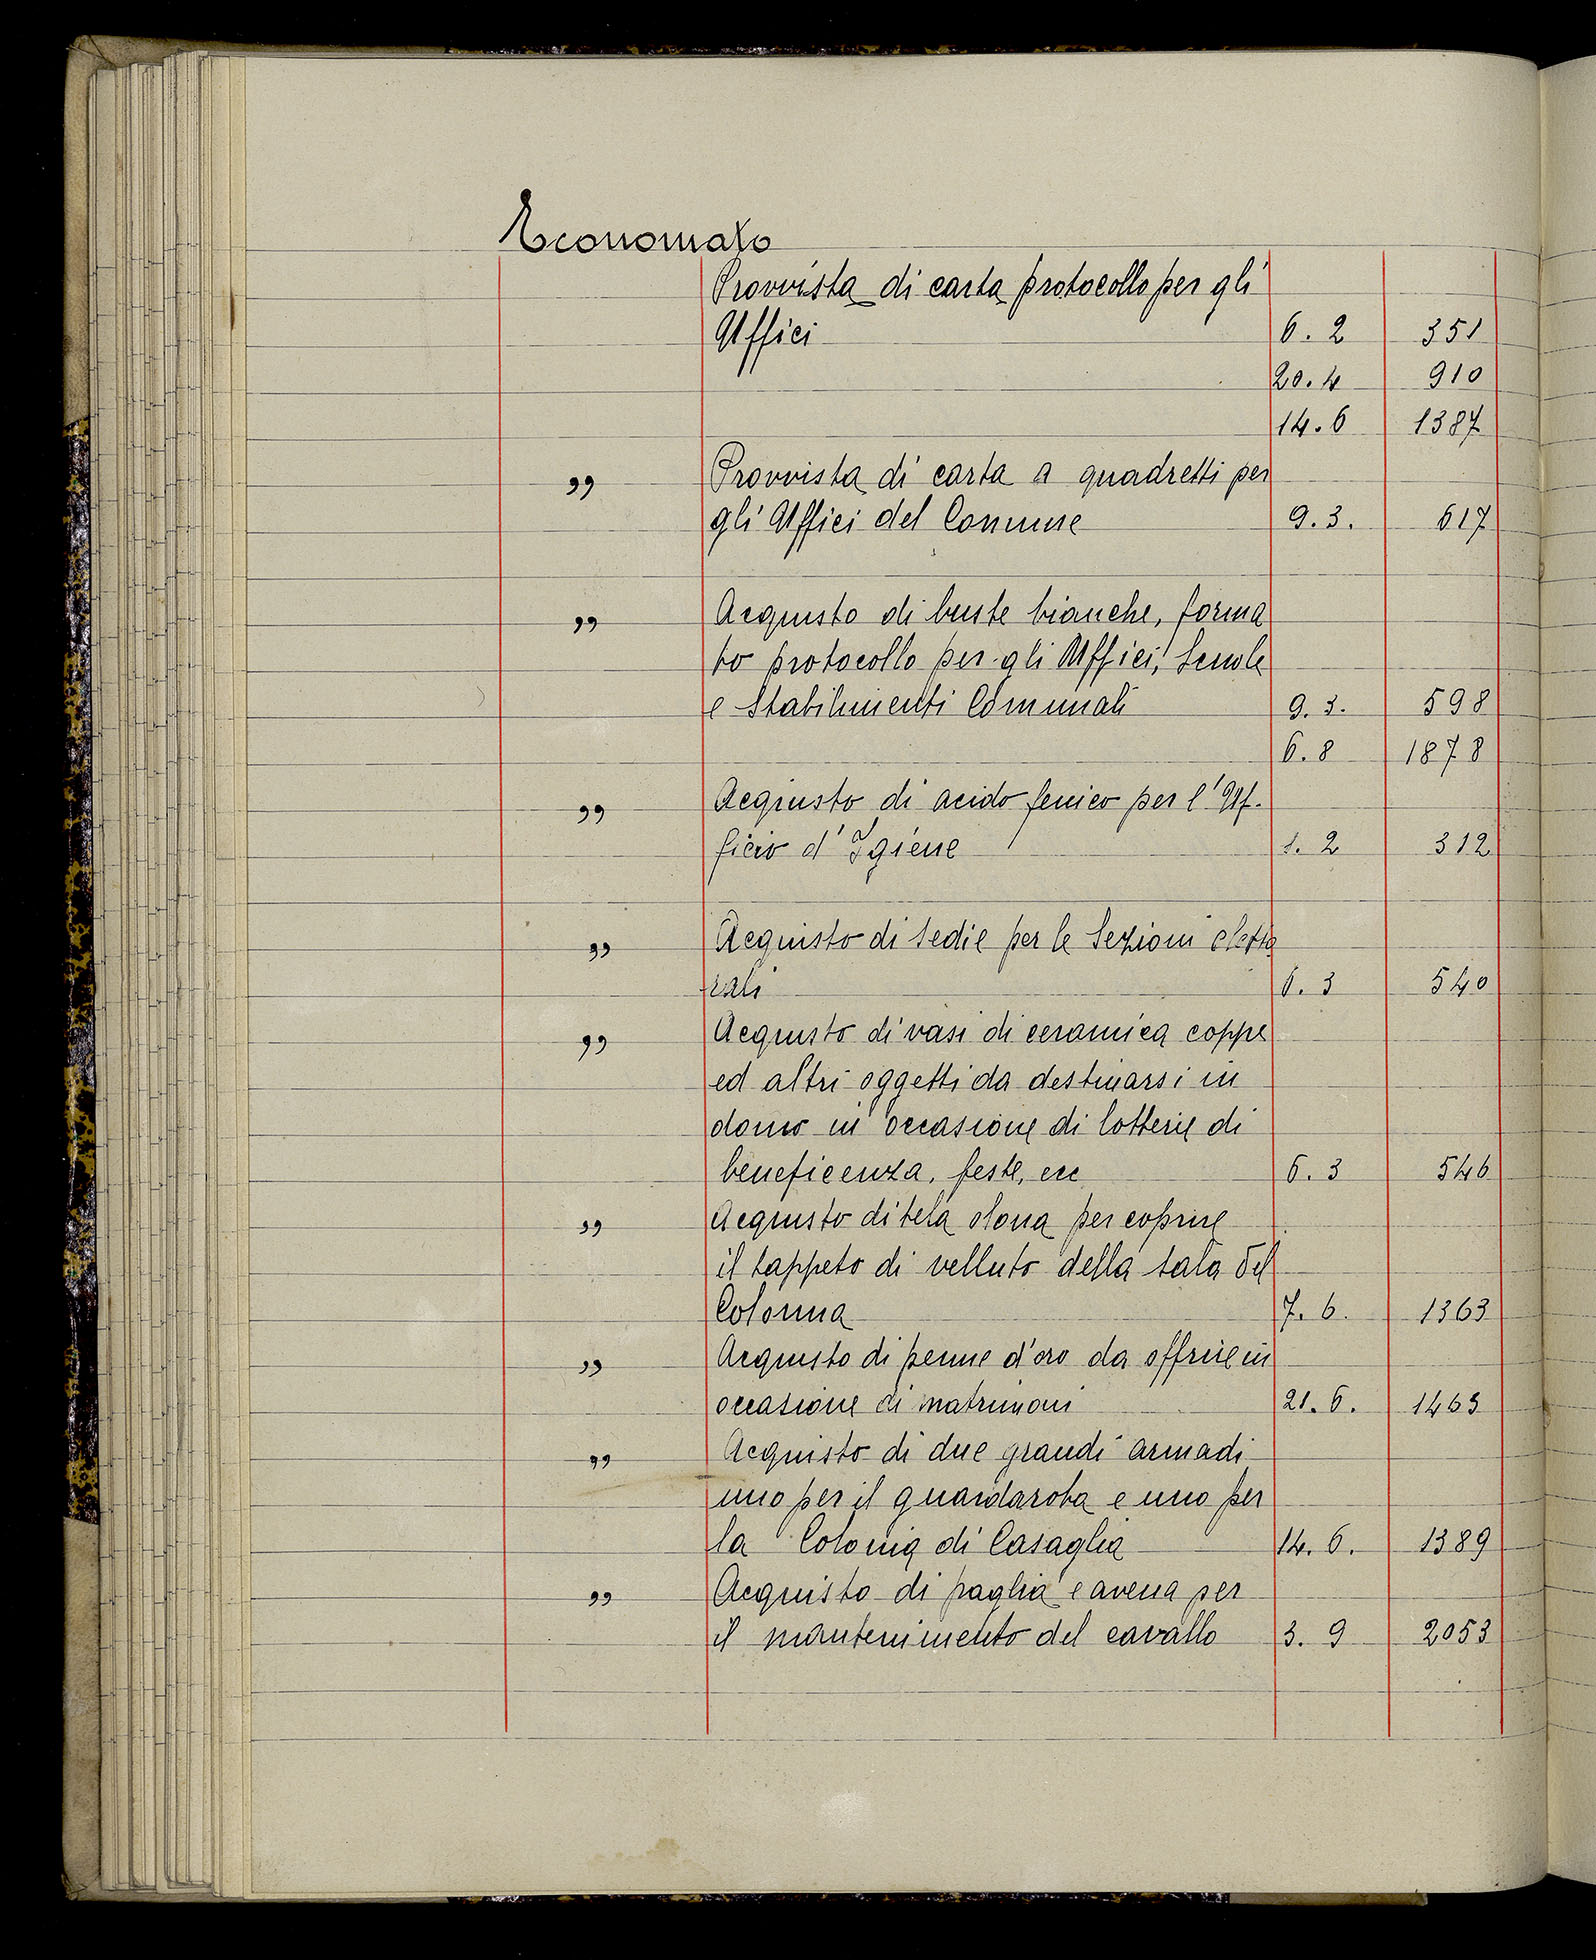 Economato
Provvista di carta protocollo per gli
Uffici 6. 2 351
20. 4 910
14. 6 1387
" Provvista di carta a quadretti per
gli Uffici del Comune 9. 3. 617
" Acquisto di buste bianche, forma
to protocollo per gli Uffici, Scuole
e Stabilimenti Comunali 9. 3. 598
6. 8 1878
" Acquisto di acido fenico per l'Uf-
ficio d'Igiene 1. 2 312
" Acquisto di sedie per le Sezioni eletto
rali 6. 3 540
" Acquisto di vasi di ceramica coppe
ed altri oggetti da destinarsi in
dono in occasione di lotterie di
beneficenza, feste, ecc 6. 3 546
" Acquisto di tela olona per coprire
il tappeto di velluto della sala del
Colonna 7. 6. 1363
" Acquisto di penne d'oro da offrire in
occasione di matrimoni 21. 6. 1463
" Acquisto di due grandi armadi
uno per il guardaroba e uno per
la Colonia di Casaglia 14. 6. 1389
" Acquisto di paglia e avena per
il mantenimento del cavallo 3. 9 2053